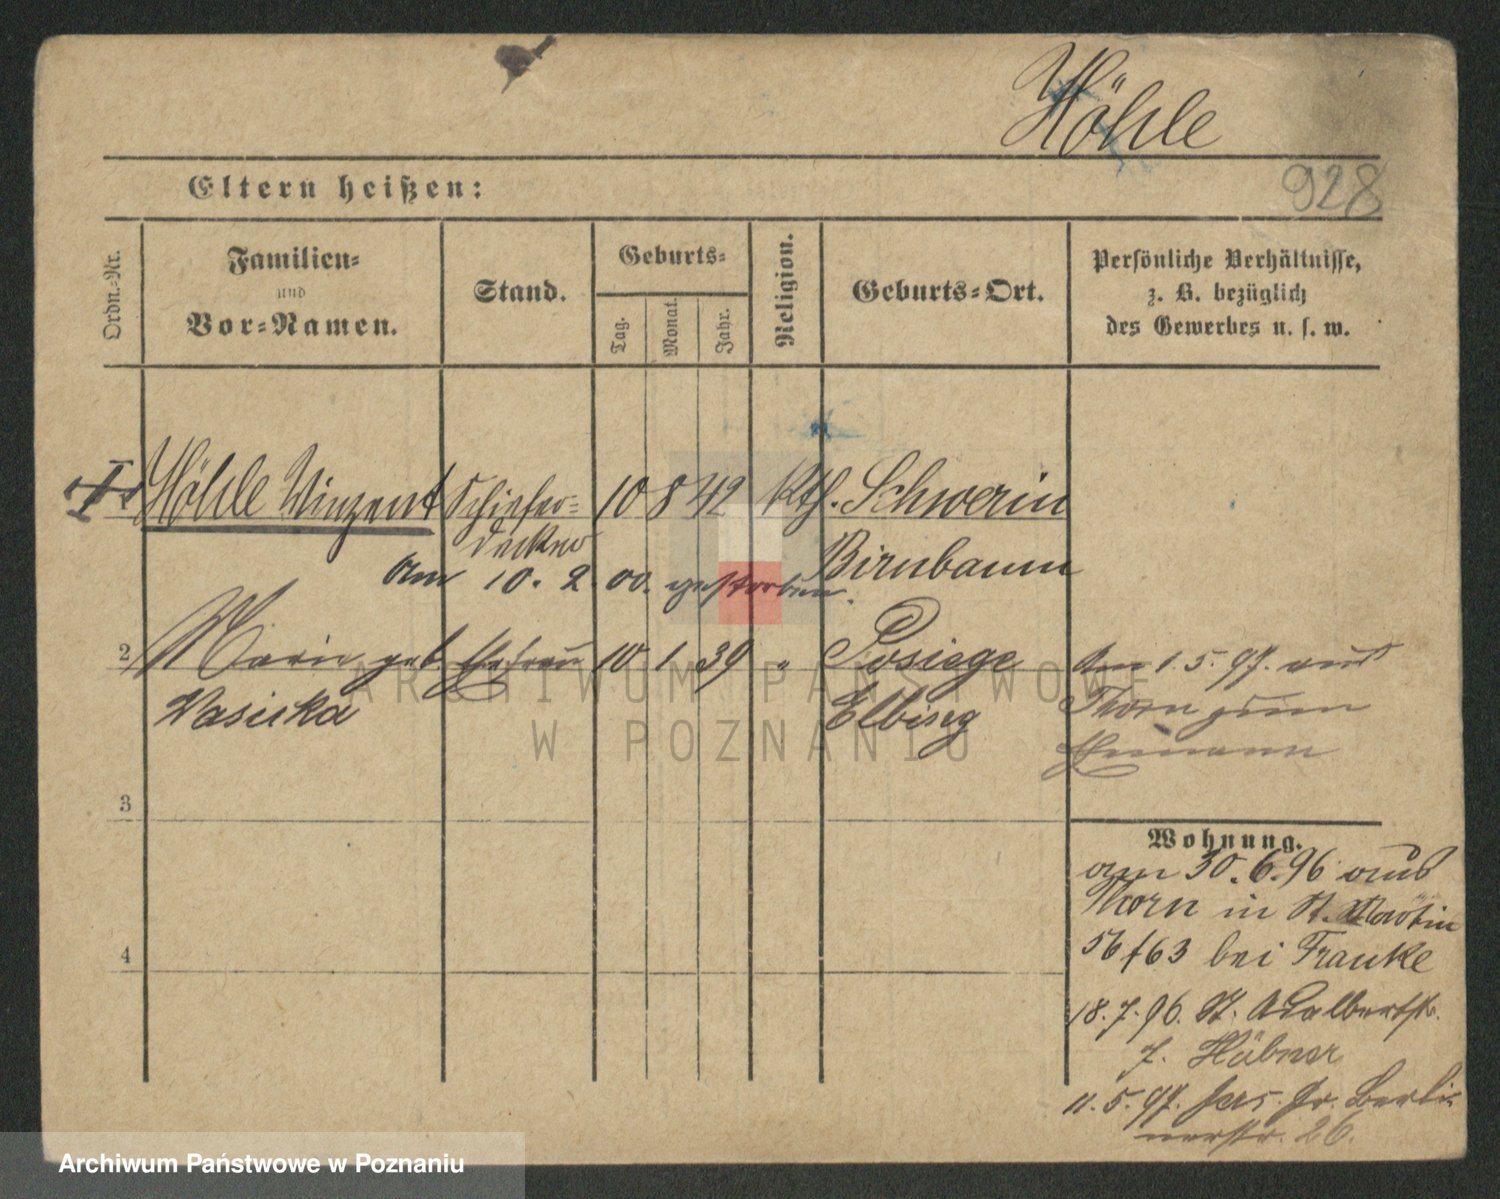 Höhle
928
Eltern heißen:
Ordn.-Nr.
Familien-
und
Vor-Namen.
Stand.
Geburts-
Tag.
Monat.
Jahr.
Religion.
Geburts-Ort.
Persönliche Verhältnisse,
z. B. bezüglich
des Gewerbes u. s. w.
Höhle Vinzent Schiefer- 10 8 42 Kth. Schwerin
decker Birnbaum
am 10. 2. 00. gestorben.
2 Marie geb Ehefrau 10 1 39 " Posiege
Wasicka Elbing
Am 1. 5. 97. aus
Thorn zum
Ehemann
3
4
Wohnung.
am 30. 6. 96 aus
Thorn in St. Martin
56/63 bei Franke
18. 7. 96. St. Adalbertstr.
7. Hübner
11. 5. 97. Jers. Gr. Berli-
nerstr. 26.
ARCHIWUM PAŃSTWOWE
W POZNANIU
Archiwum Państwowe w Poznaniu